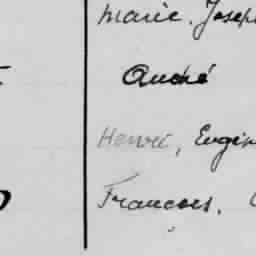 Marie, Joseph
André
Henri, Eugèn
Francois,